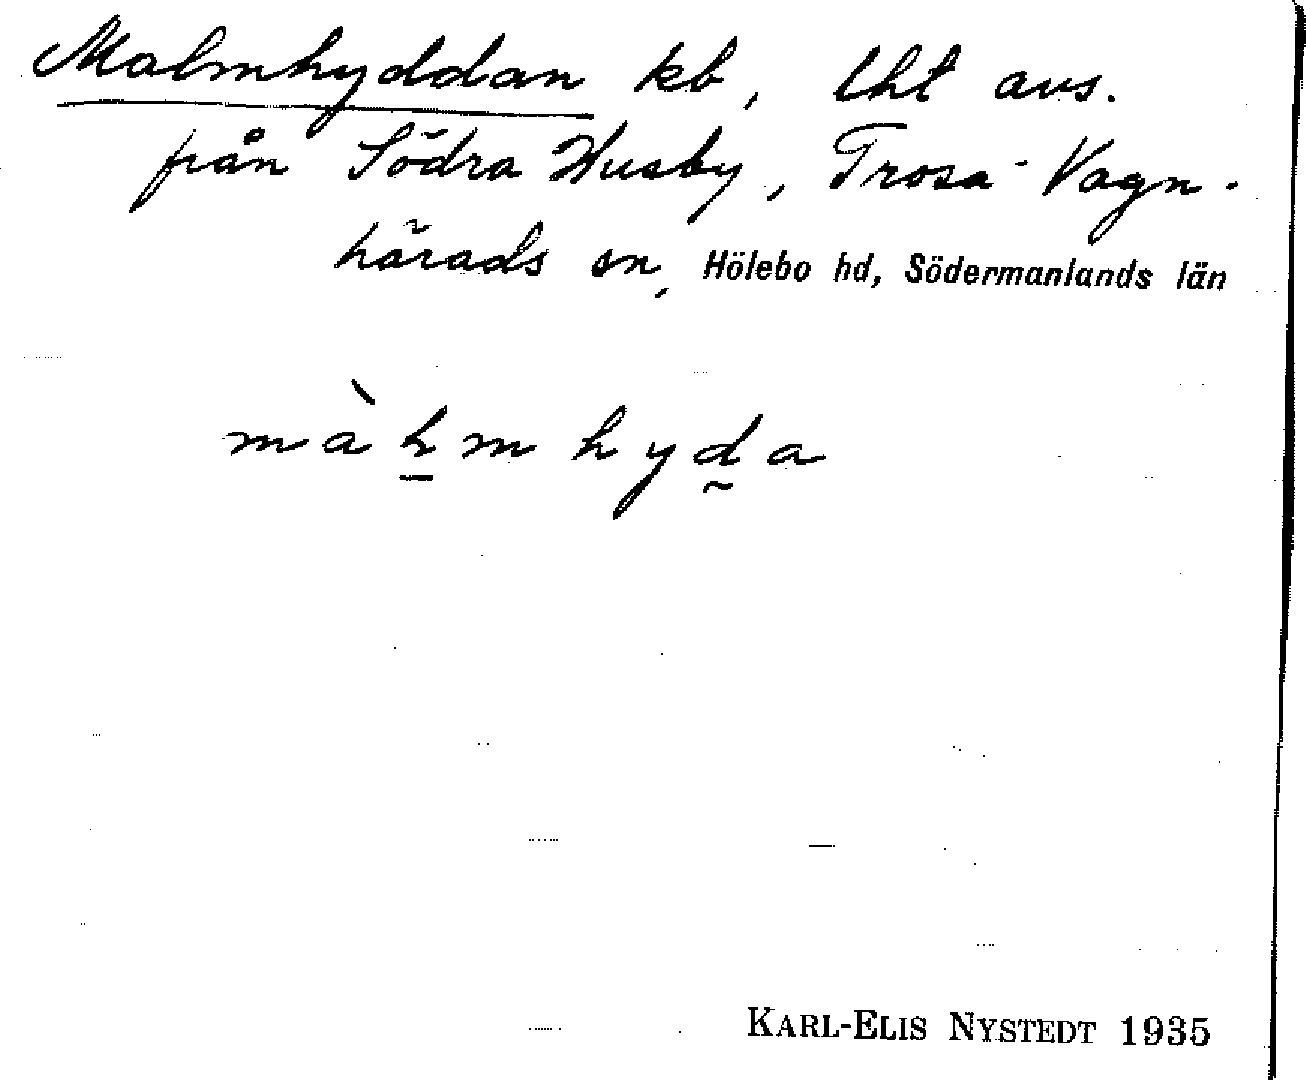 Malmhyddan kb, lht avs.
från Södra Husby, Trosa-Vagn-
härads sn, Hölebo hd, Södermanlands län
màh̲mhyd̰a
KARL-ELIS NYSTEDT 1935